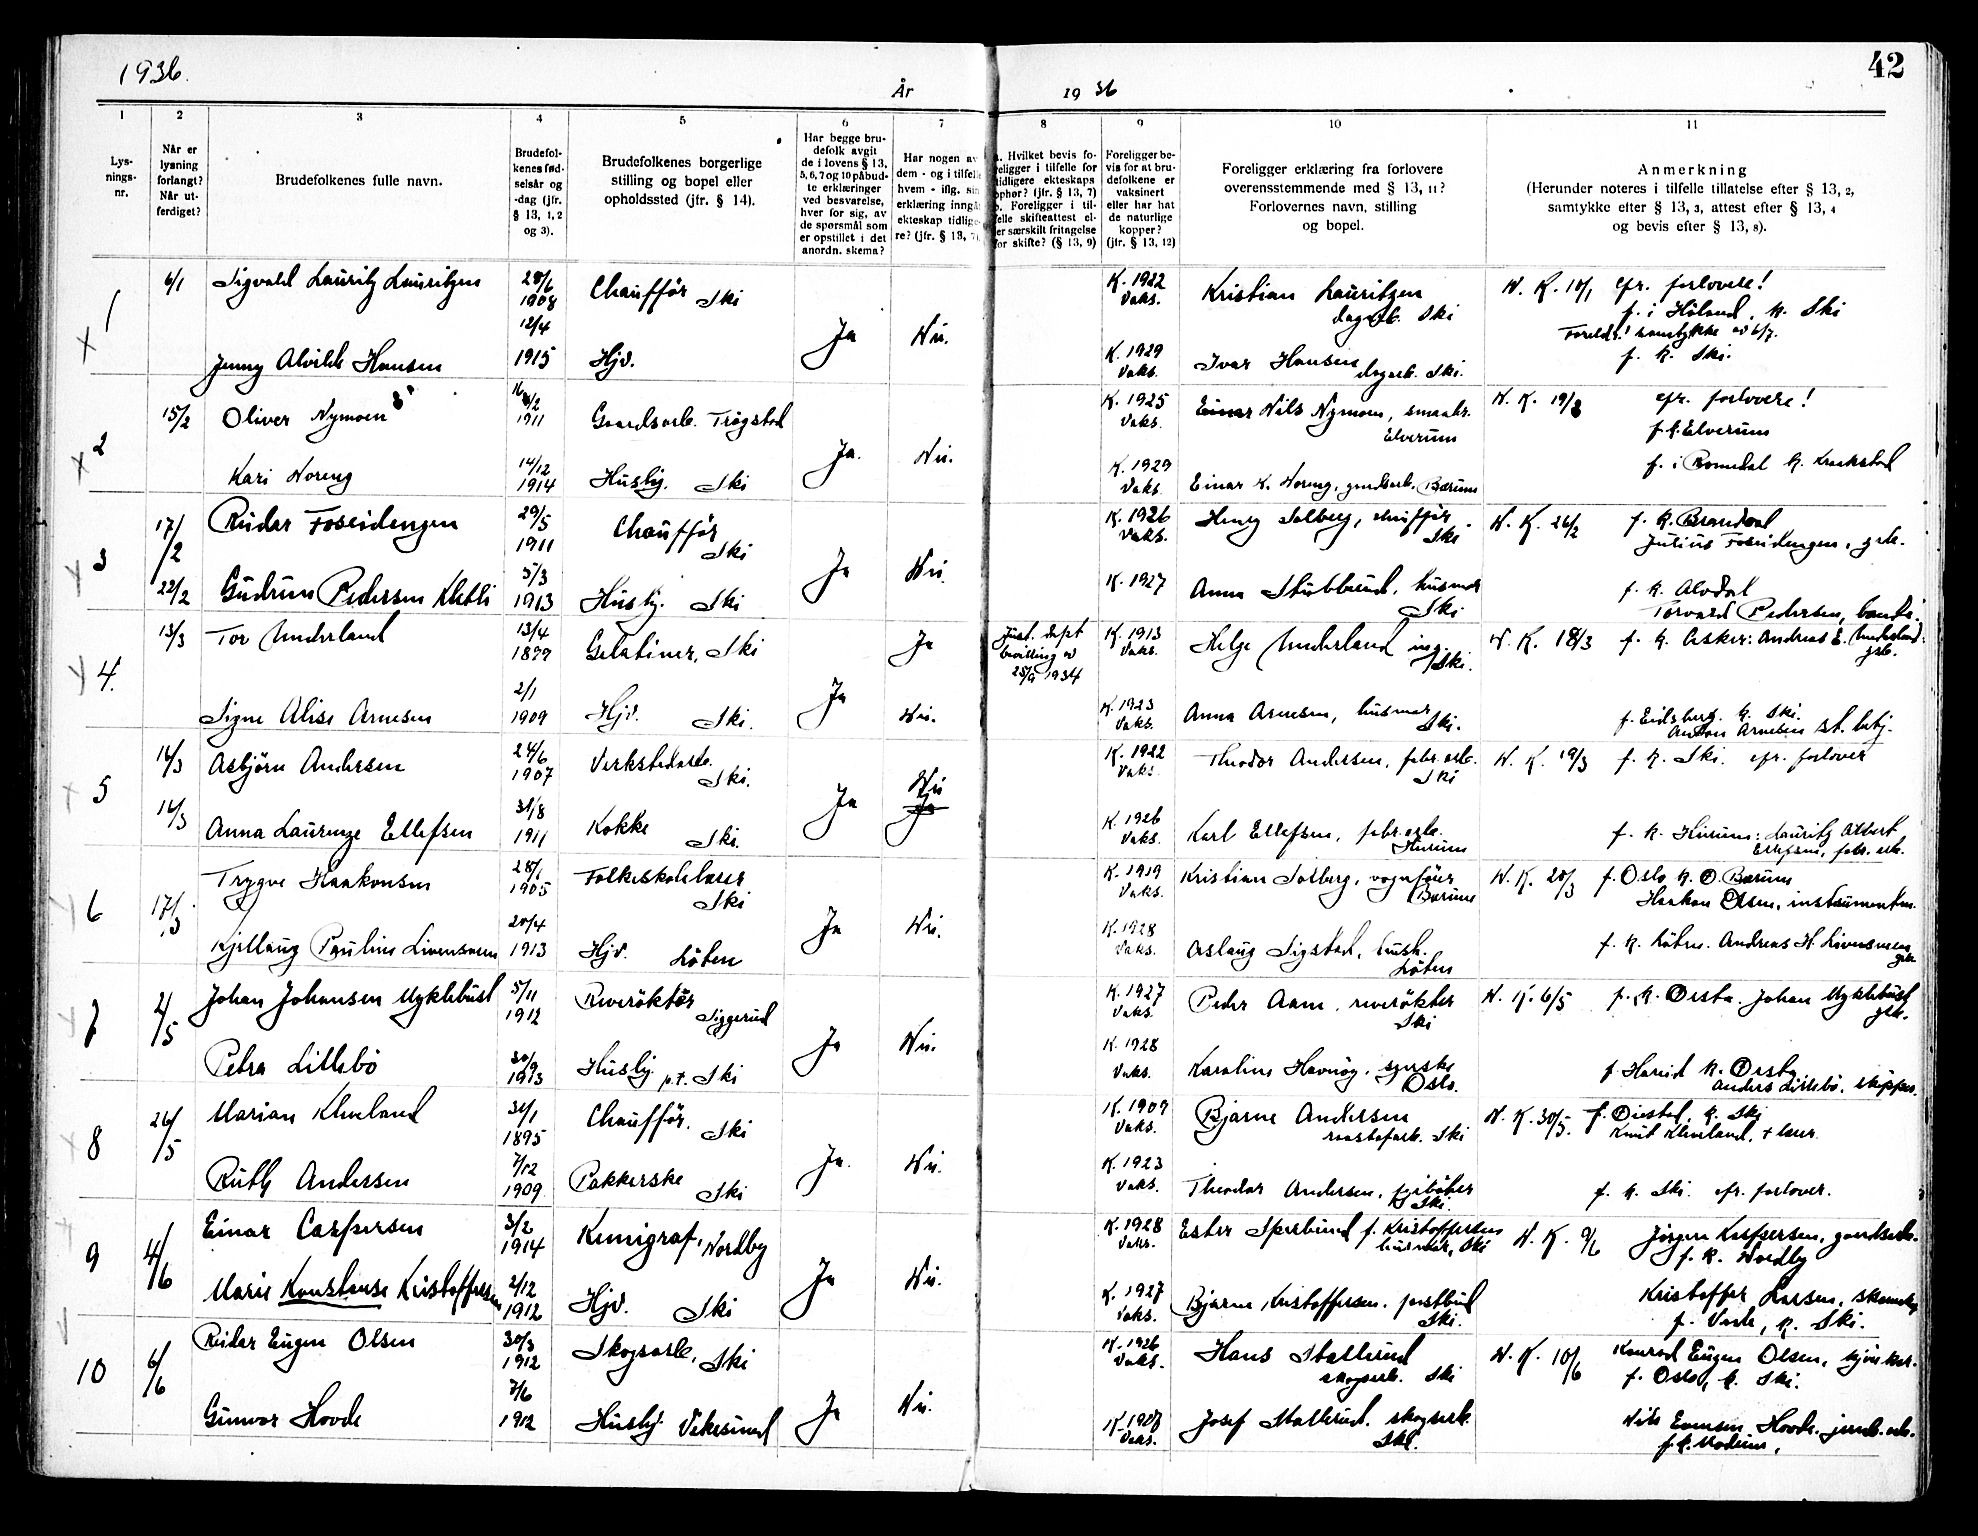 1936.
42
År
19 36
1
2
3
4
5
6
7
8
9
10
11
Lys-
nings-
nr.
Når er
lysning
forlangt?
Når ut-
ferdiget?
Brudefolkenes fulle navn.
Brudefol-
kenes fød-
selsår og
-dag (jfr.
§ 13, 1, 2
og 3).
Brudefolkenes borgerlige
stilling og bopel eller
opholdssted (jfr. § 14).
Har begge bru-
defolk avgit
de i lovens § 13,
5, 6, 7 og 10 påbud-
te erklæringer
ved besvarelse,
hver for sig, av
de spørsmål som
er opstillet i det
anordn. skema?
Har nogen av
dem - og i tilfelle
hvem - iflg. sin
erklæring inngå
ekteskap tidlige-
re? (jfr. § 13, 7)
a. Hvilket bevis fo-
religger i tilfelle for
tidligere ekteskaps
ophør? (jfr. § 13, 7)
b. Foreligger i til-
felle skifteattest el-
er særskilt fritagelse
for skifte? (§ 13, 9)
Foreligger be-
vis for at bru-
defolkene er
vaksinert
eller har hat
de naturlige
kopper?
(jfr. § 13, 12)
Foreligger erklæring fra forlovere
overensstemmende med § 13, 11?
Forlovernes navn, stilling
og bopel.
Anmerkning
(Herunder noteres i tilfelle tillatelse efter § 13, 2,
samtykke efter § 13, 3, attest efter § 13, 4
og bevis efter § 13, 8).
1
6/1 Sigvald Lauritz Lauritzen 28/6 1908 Chaufför Ski
K. 1922 Vaks. Kristian Lauritzen dagarb. Ski
N. K. 10/1 cfr. forlovere!
f. i Höland, K. Ski
Ja Nei.
Jenny Alvilde Hansen 12/4 1915 Hjv.
K. 1929 Vaks. Ivar Hansen dagarb. Ski.
f. K. Ski.
2
15/2 Oliver Nymoen 1911 Gaardsarb. Trögstad
K. 1925 Vaks. Nils Nymoen, smaabr. Elverum
N. K. cfr. forlovere!
f. K. Elverum
Ja. Nei.
Kari Noreng 14/12 1914 Husby. Ski
K. 1929 Vaks. Einar K. Noreng, gardsarb. Bærum
f. i Romedal K. Kraakstad
3
17/2 Reidar Foseidengen 29/5 1911 Chaufför Ski
K. 1926 Vaks. Henry Solberg, chaufför Ski
N. K. 26/2 f. K. Brandval
Julius Foseidengen, grb.
Ja Nei.
22/2 Gudrun Pedersen Kletli 5/3 1913 Husby. Ski
K. 1927 Anna Stubberud, husmor Ski
f. K. Alvdal
Torvald Pedersen,
4.
13/3 Tor Underland 13/4 1899 Gelatiner, Ski
Ja Just. dept bevilling av 25/9 1934
K. 1913 Vaks. Helge Underland ing. Ski.
N. K. 18/3 f. K. Asker: Andreas E. Underland: grb.
Ja
Signe Alise Arnesen 2/1 1909 Hjv. Ski.
Nei. K. 1923 Vaks. Anna Arnesen, husmor Ski.
f. Eidsberg. K. Ski.
Anton Arnesen st. betj.
5
14/3 Asbjörn Andersen 24/6 1907 Verkstedarb. Ski.
K. 1922 Vaks. Theodor Andersen, fabr. arb. Ski
N. K. 19/3 f. K. Ski. cfr. forlover
Ja Nei Ja
14/3 Anna Laurenze Ellefsen 31/8 1911 Kokke Ski.
K. 1926 Vaks. Karl Ellefsen, fabr. arb. Hurum
f. K. Hurum: Lauritz Albert Ellefsen, fabr. arb.
6
17/3 Trygve Haakonsen 28/1 1905 Folkeskolelærer Ski
K. 1919 Vaks. Kristian Solberg, vognförer Bærum
N. K. 20/3 f. Oslo K. Ö. Bærum
Haakon Olsen, instrumentm.
Ja Nei.
Kjellaug Pauline Livensveen 20/4 1913 Hjv. Löten
K. 1928 Vaks. Aslaug Sigstad, hush. Löten
f. K. Löten. Andreas H. Livensveen grb.
7
2/5 Johan Johansen Myklebust 5/11 1912 Reverökter Siggerud
K. 1927 Vaks. Peder Aam, reverökter Ski
N. K. 6/5 f. K. Örsta. Johan Myklebust grb.
Ja Nei.
Petra Lillebö 30/9 1913 Husby. p.t. Ski
K. 1928 Vaks. Karoline Havnög, syerske Oslo.
f. Hareid K. Örsta
Anders Lillebö, skipper.
8
26/5 Marian Kleveland 31/1 1895 Chaufför. Ski
K. 1909 Vaks. Bjarne Andersen Ski
N. K. 30/5. f. Öiestad, K. Ski
Knut Kleveland, + lærer
Ja. Nei.
Ruth Andersen 7/12 1909 Pakkerske Ski
K. 1923 Vaks. Theodor Andersen, Ski.
f. K. Ski. cfr. forlover.
9
4/6 Einar Caspersen 3/2 1914 Kemigraf, Nordby
K. 1928 Vaks. Ester Sperbund f. Kristoffersen husmor, Ski
N. K. 9/6 Jörgen Kaspersen, gaardsarb.
f. K. Nordby
Ja Nei.
Marie Konstanse Kristoffersen 2/12 1912 Hjv. Ski
K. 1927 Vaks. Bjarne Kristoffersen. postbud Ski.
Kristoffer Larsen,
f. Vestby, K. Ski.
10
6/6 Reidar Eugen Olsen 30/3 1912 Skogsarb, Ski
K. 1926 Vaks. Hans Stallerud skogsarb. Ski
N. K. 10/6 Konrad Eugen Olsen,
f. Oslo, K. Ski.
Ja Nei.
Gunvor Hovde 7/6 1912 Husby. Vikersund
K. 1927 Vaks. Josef Stallerud, skogsarb. Ski.
Nils Evensen Hovde. jernb. arb.
f. K. Modum.